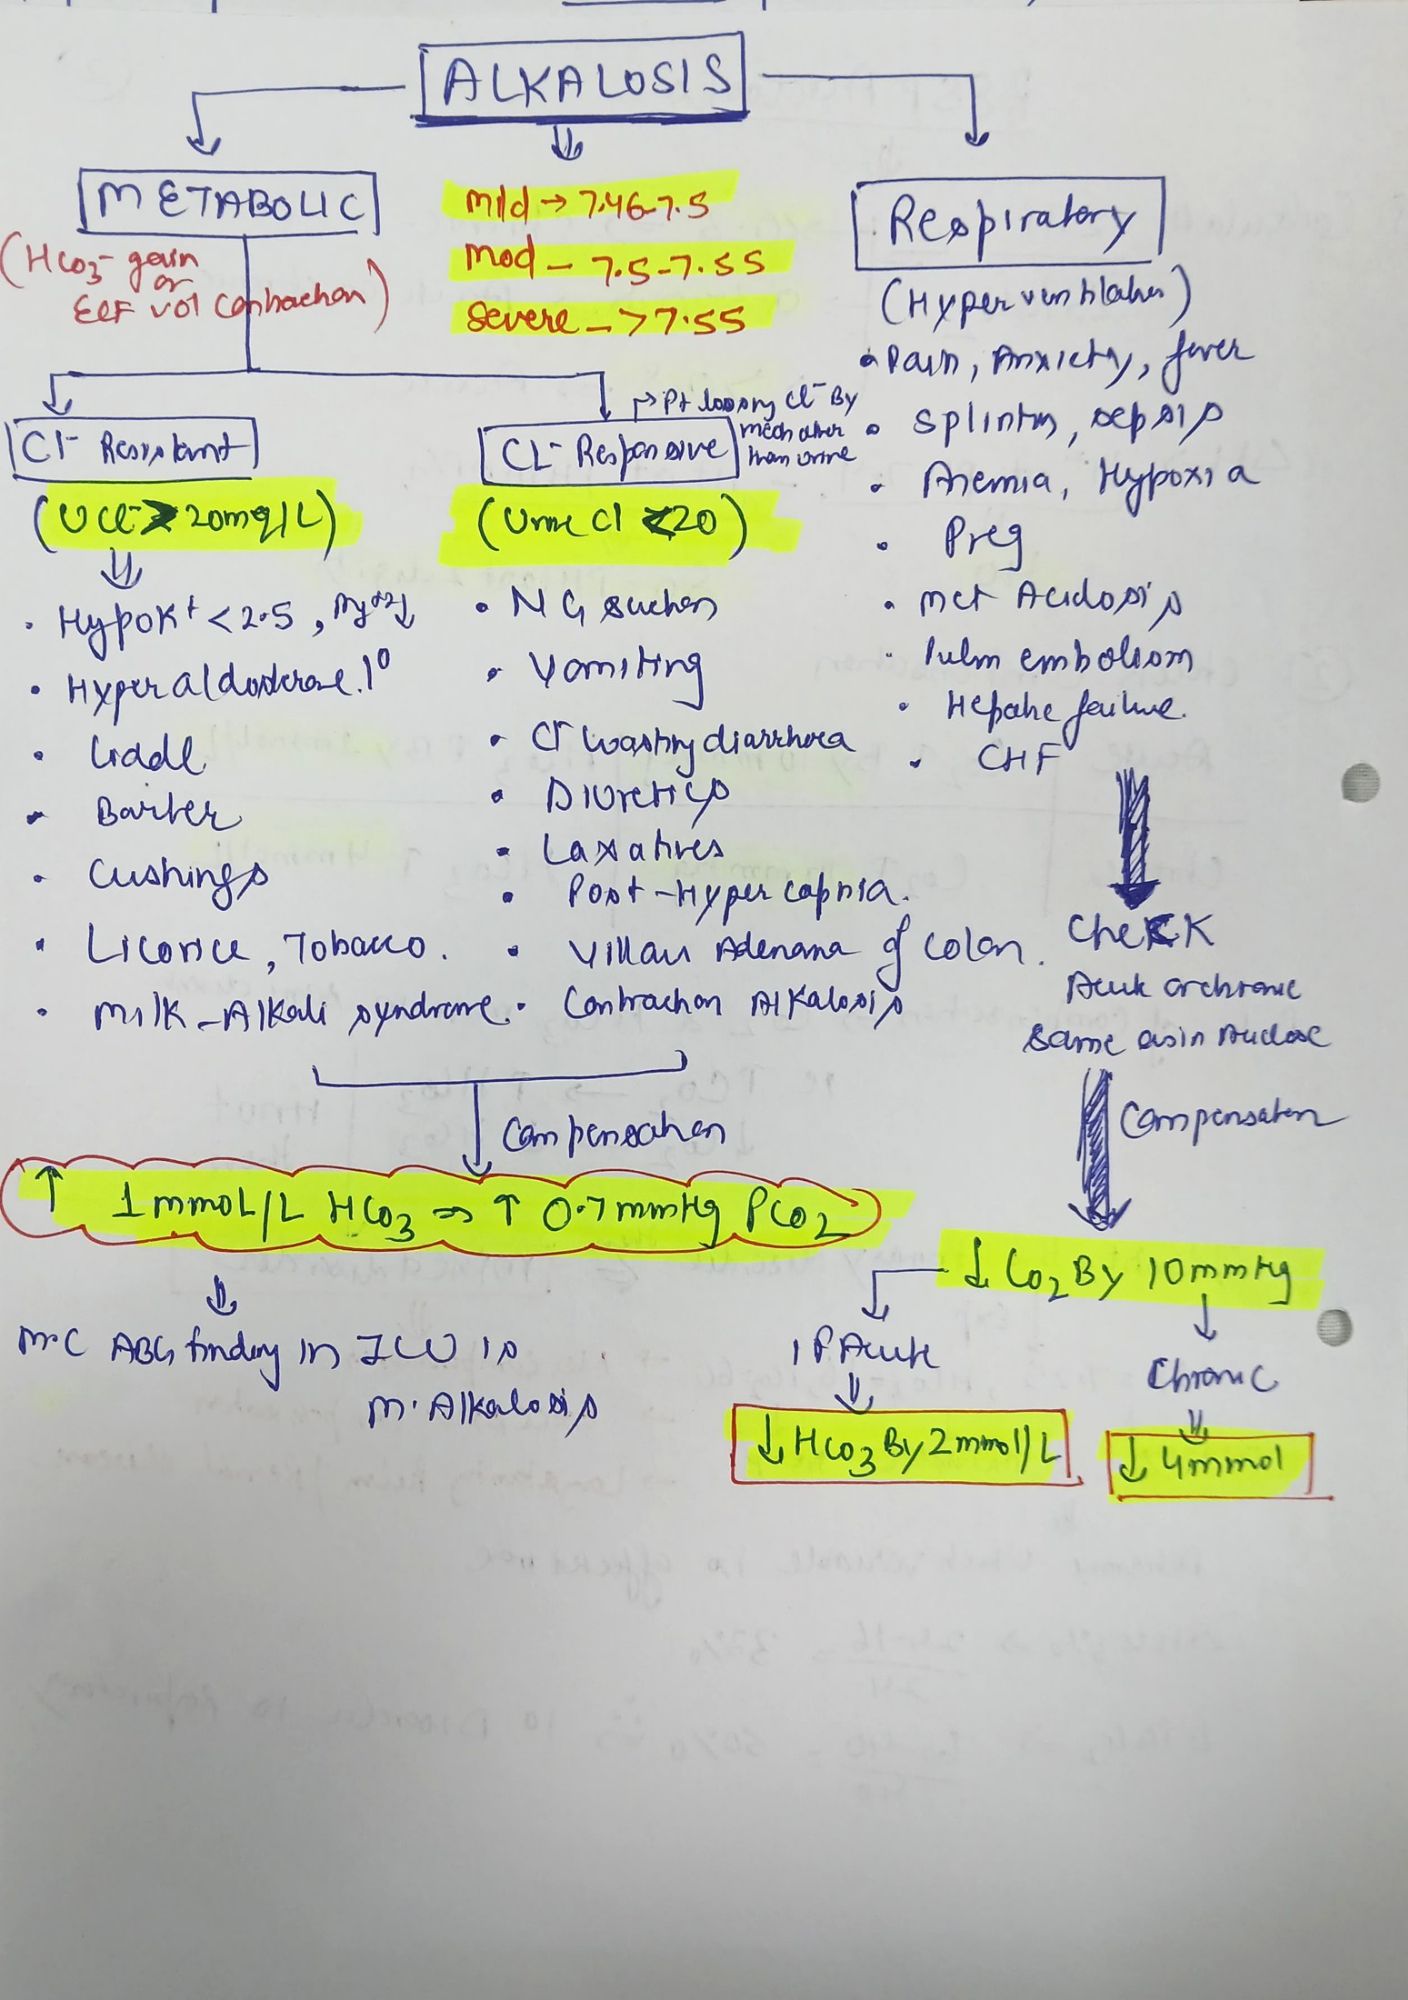 ALKALOSIS
METABOLIC
(HCO3- gain
or
ECF vol Contraction)
Mild → 7.46-7.5
Mod – 7.5-7.55
Severe – >7.55
Respiratory
(Hyperventilation)
• Pain, Anxiety, fever
• Splinting, sepsis
• Anemia, Hypoxia
• Preg
• Met Acidosis
• Pulm embolism
• Hepatic failure.
• CHF
Cl- Resistant
(UCl- > 20mg/L)
⇓
• HypoK+ < 2.5, Mg+2↓
• Hyperaldosterone. 1°
• Liddl
• Barter
• Cushings
• Licorice, Tobacco.
• Milk-Alkali syndrome.
CL- Responsive
→ Pt loosing Cl- By
mech other
than urine
(Urine Cl <20)
• NG suction
• Vomiting
• Cl- wasting diarrhoea
• Diuretics
• Laxatives
• Post-Hypercapnia.
• Villous Adenama of Colon.
• Contraction Alkalosis
Compensation
↑ 1mmoL/L HCO3 ⇒ ↑ 0.7mmHg PCO2
⇓
M.C ABG finding in ICU is
M. Alkalosis
CheCK
Acute or chronic
Same as in Acidose
Compensation
↓ CO2 By 10mmHg
IF Acute
⇓
↓ HCO3 By 2mmol/L
Chronic
⇓
↓ 4mmol